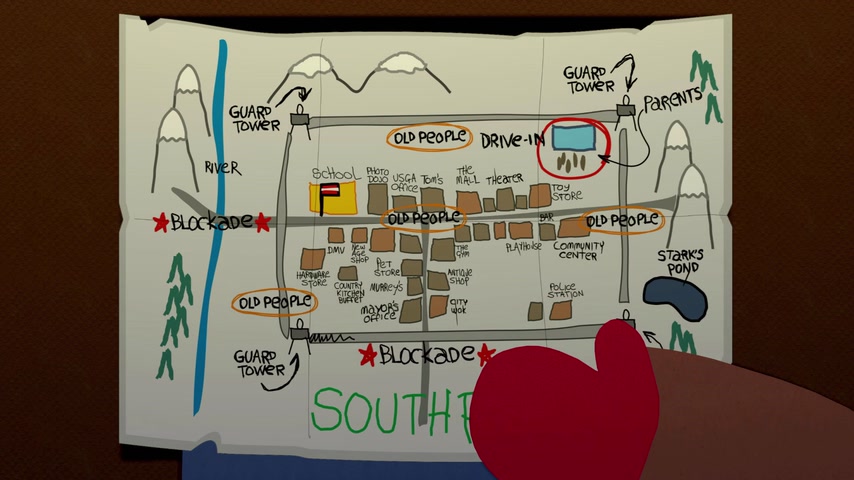 GUARD
TOWER
PARENTS
GUARD
TOWER
OLD PEOPLE
DRIVE-IN
RIVER
SCHOOL
PHOTO
DOJO
USGA
OFFICE
TOM'S
THE
MALL
THEATER
TOY
STORE
BLOCKADE
OLD PEOPLE
BAR
OLD PEOPLE
DMV
NEW
AGE
SHOP
PET
STORE
THE
GYM
PLAYHOUSE
COMMUNITY
CENTER
STARK'S
POND
HARDWARE
STORE
COUNTRY
KITCHEN
BUFFET
MURREY'S
ANTIQUE
SHOP
POLICE
STATION
OLD PEOPLE
MAYOR'S
OFFICE
CITY
WOK
GUARD
TOWER
BLOCKADE
SOUTH